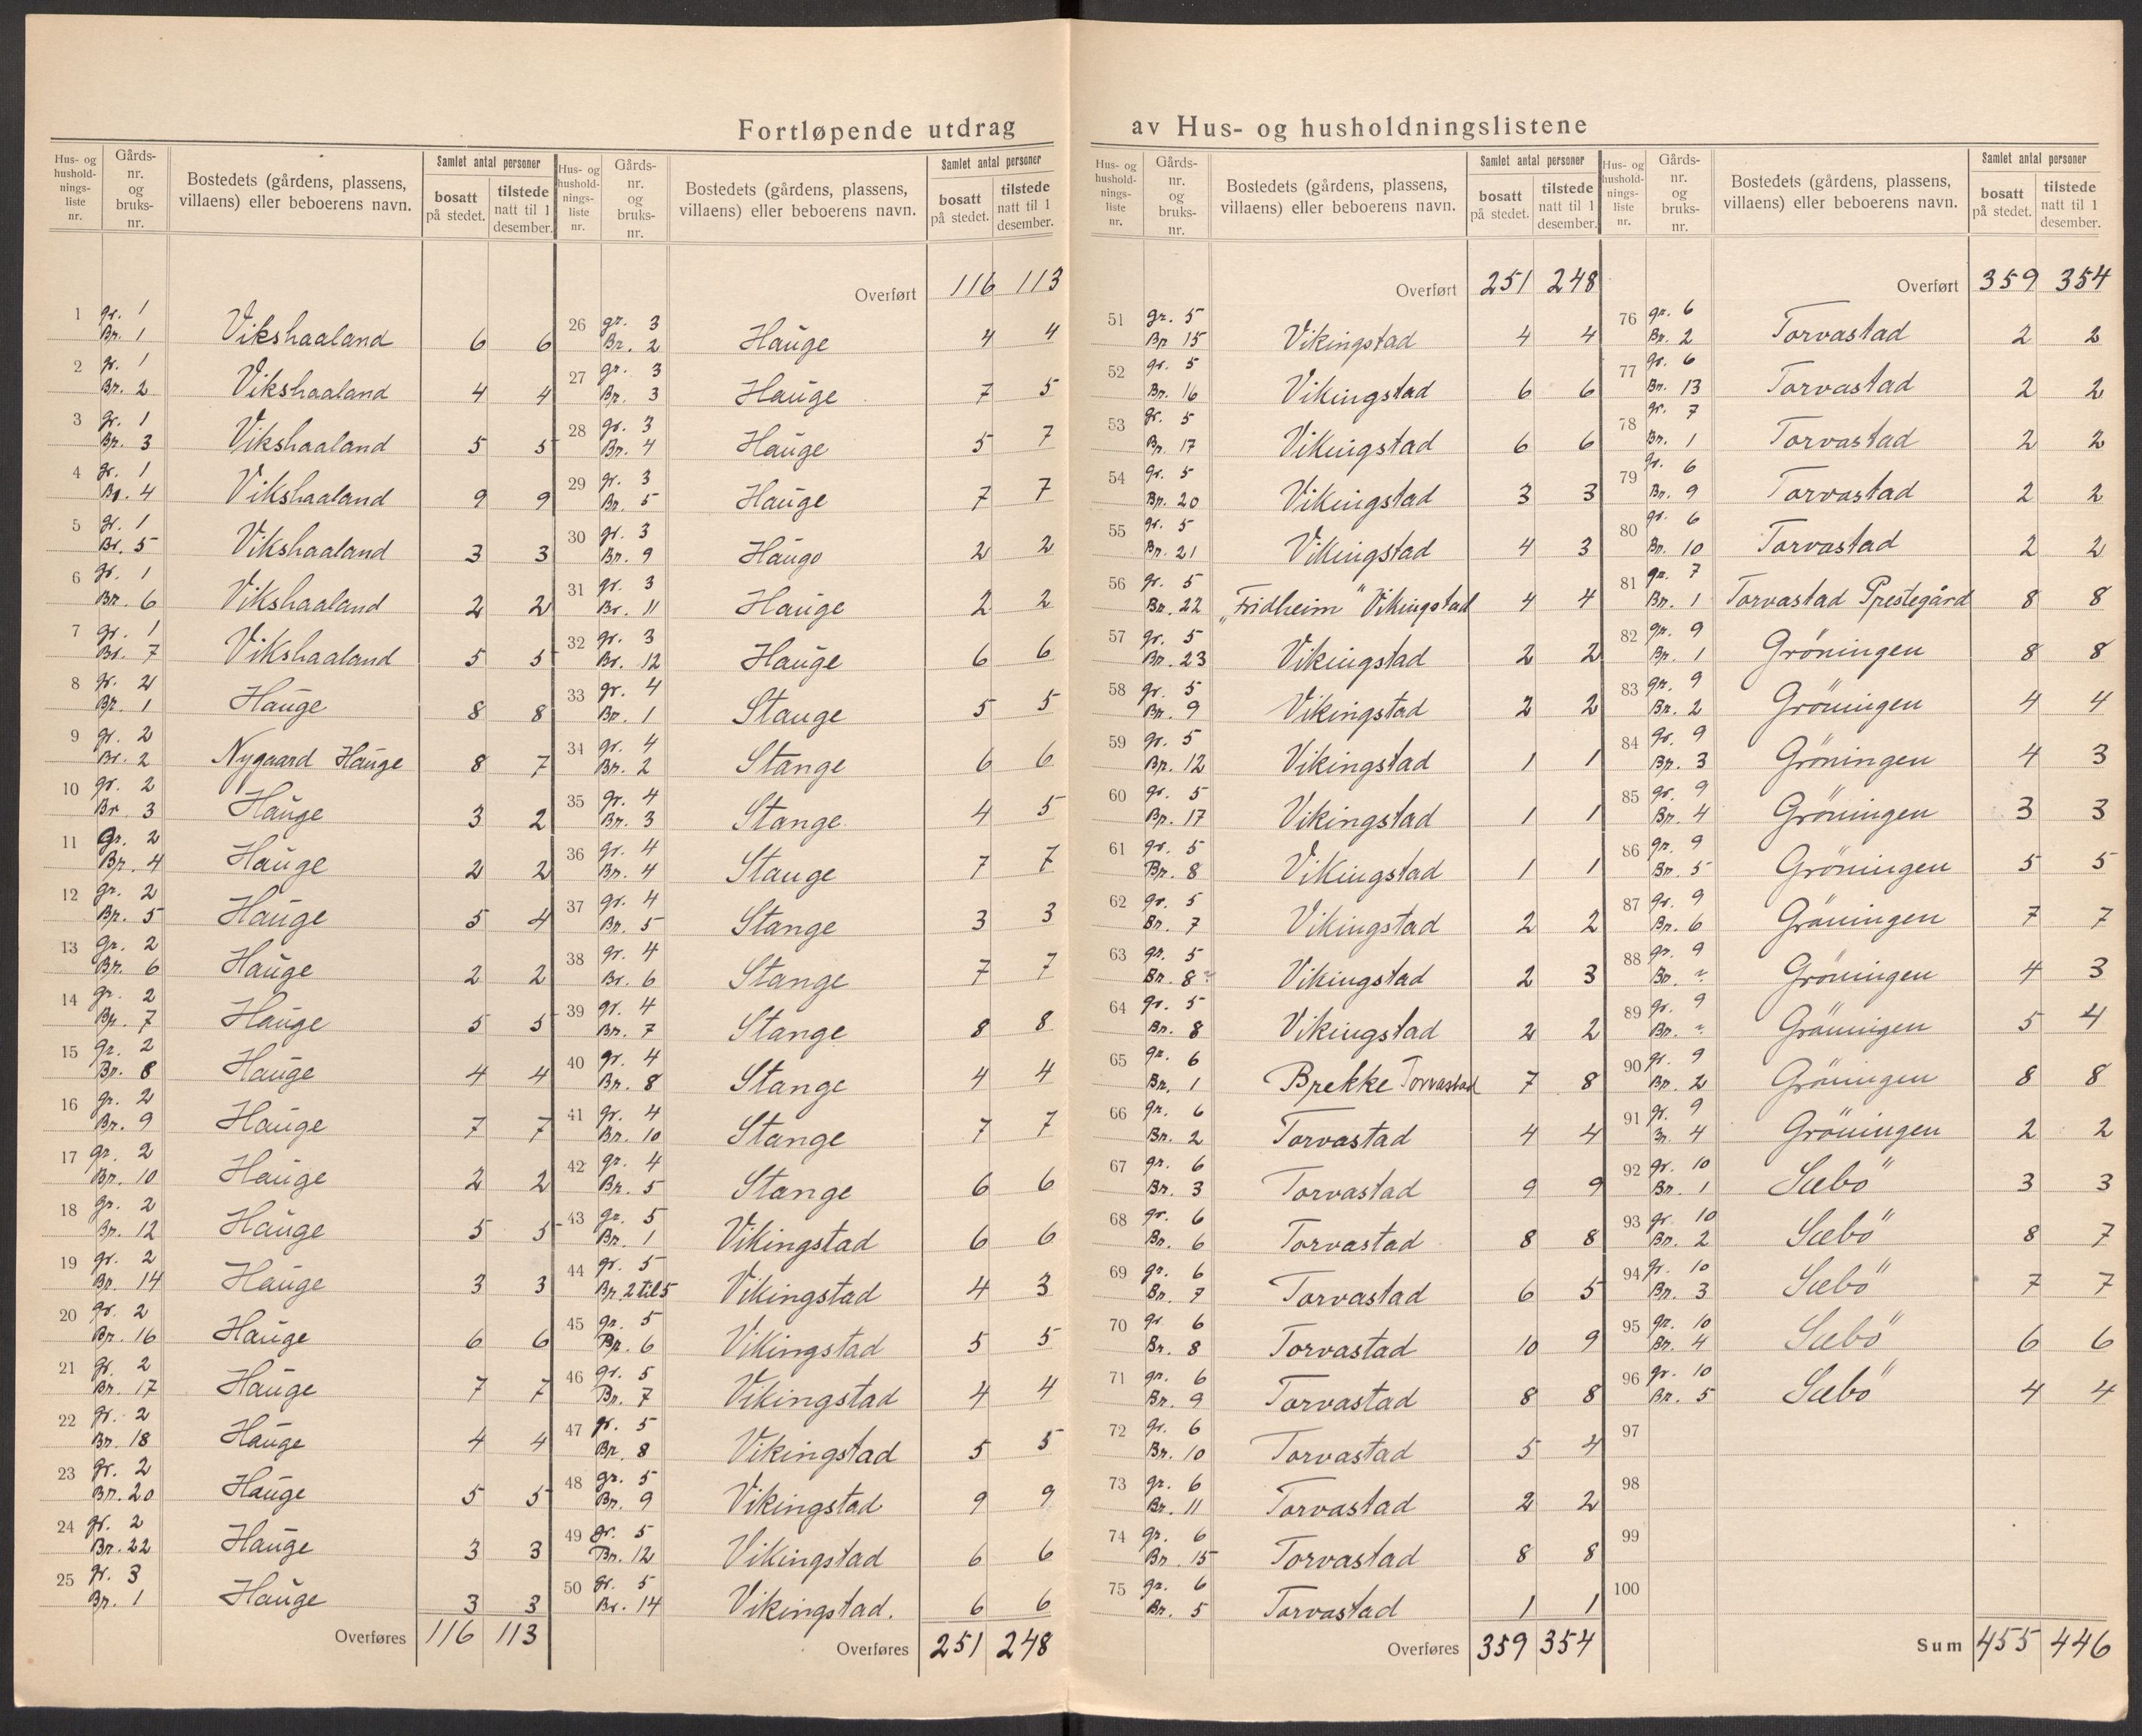 Fortløpende utdrag av Hus- og husholdningslistene
Hus- og husholdningsliste nr. | Gårds-nr. og bruks-nr. | Bostedets (gårdens, plassens, villaens) eller beboerens navn. | Samlet antal personer bosatt på stedet. | tilstede natt til 1 desember.
1 gr. 1 Br. 1 Vikshaaland 6 6
2 gr. 1 Br. 2 Vikshaaland 4 4
3 gr. 1 Br. 3 Vikshaaland 5 5
4 gr. 1 Br. 4 Vikshaaland 9 9
5 gr. 1 Br. 5 Vikshaaland 3 3
6 gr. 1 Br. 6 Vikshaaland 2 2
7 gr. 1 Br. 7 Vikshaaland 5 5
8 gr. 2 Br. 1 Hauge 8 8
9 gr. 2 Br. 2 Nygaard Hauge 8 7
10 gr. 2 Br. 3 Hauge 3 2
11 gr. 2 Br. 4 Hauge 2 2
12 gr. 2 Br. 5 Hauge 5 4
13 gr. 2 Br. 6 Hauge 2 2
14 gr. 2 Br. 7 Hauge 5 5
15 gr. 2 Br. 8 Hauge 4 4
16 gr. 2 Br. 9 Hauge 7 7
17 gr. 2 Br. 10 Hauge 2 2
18 gr. 2 Br. 12 Hauge 5 5
19 gr. 2 Br. 14 Hauge 3 3
20 gr. 2 Br. 16 Hauge 6 6
21 gr. 2 Br. 17 Hauge 7 7
22 gr. 2 Br. 18 Hauge 4 4
23 gr. 2 Br. 20 Hauge 5 5
24 gr. 2 Br. 22 Hauge 3 3
25 gr. 3 Br. 1 Hauge 3 3
Overføres 116 113
Hus- og husholdningsliste nr. | Gårds-nr. og bruks-nr. | Bostedets (gårdens, plassens, villaens) eller beboerens navn. | Samlet antal personer bosatt på stedet. | tilstede natt til 1 desember.
Overført 116 113
26 gr. 3 Br. 2 Hauge 4 4
27 gr. 3 Br. 3 Hauge 7 5
28 gr. 3 Br. 4 Hauge 5 7
29 gr. 3 Br. 5 Hauge 7 7
30 gr. 3 Br. 9 Haugo 2 2
31 gr. 3 Br. 11 Hauge 2 2
32 gr. 3 Br. 12 Hauge 6 6
33 gr. 4 Br. 1 Stange 5 5
34 gr. 4 Br. 2 Stange 6 6
35 gr. 4 Br. 3 Stange 4 5
36 gr. 4 Br. 4 Stange 7 7
37 gr. 4 Br. 5 Stange 3 3
38 gr. 4 Br. 6 Stange 7 7
39 gr. 4 Br. 7 Stange 8 8
40 gr. 4 Br. 8 Stange 4 4
41 gr. 4 Br. 10 Stange 7 7
42 gr. 4 Br. 5 Stange 6 6
43 gr. 5 Br. 1 Vikingstad 6 6
44 gr. 5 Br. 2 til 5 Vikingstad 4 3
45 gr. 5 Br. 6 Vikingstad 5 5
46 gr. 5 Br. 7 Vikingstad 4 4
47 gr. 5 Br. 8 Vikingstad 5 5
48 gr. 5 Br. 9 Vikingstad 9 9
49 gr. 5 Br. 12 Vikingstad 6 6
50 gr. 5 Br. 14 Vikingstad. 6 6
Overføres 251 248
Hus- og husholdningsliste nr. | Gårds-nr. og bruks-nr. | Bostedets (gårdens, plassens, villaens) eller beboerens navn. | Samlet antal personer bosatt på stedet. | tilstede natt til 1 desember.
Overført 251 248
51 gr. 5 Br 15 Vikingstad 4 4
52 gr. 5 Br. 16 Vikingstad 6 6
53 gr. 5 Br. 17 Vikingstad 6 6
54 gr. 5 Br. 20 Vikingstad 3 3
55 gr. 5 Br. 21 Vikingstad 4 3
56 gr. 5 Br. 22 „Fridheim" Vikingstad 4 4
57 gr. 5 Br. 23 Vikingstad 2 2
58 gr. 5 Br. 9 Vikingstad 2 2
59 gr. 5 Br. 12 Vikingstad 1 1
60 gr. 5 Br. 17 Vikingstad 1 1
61 gr. 5 Br. 8 Vikingstad 1 1
62 gr. 5 Br. 7 Vikingstad 2 2
63 gr. 5 Br. 8 Vikingstad 2 3
64 gr. 5 Br. 8 Vikingstad 2 2
65 gr. 6 Br. 1 Brekke Torvastad 7 8
66 gr. 6 Br. 2 Torvastad 4 4
67 gr. 6 Br. 3 Torvastad 9 9
68 gr. 6 Br. 6 Torvastad 8 8
69 gr. 6 Br. 7 Torvastad 6 5
70 gr. 6 Br. 8 Torvastad 10 9
71 gr. 6 Br. 9 Torvastad 8 8
72 gr. 6 Br. 10 Torvastad 5 4
73 gr. 6 Br. 11 Torvastad 2 2
74 gr. 6 Br. 15 Torvastad 8 8
75 gr. 6 Br. 5 Torvastad 1 1
Overføres 359 354
Hus- og husholdningsliste nr. | Gårds-nr. og bruks-nr. | Bostedets (gårdens, plassens, villaens) eller beboerens navn. | Samlet antal personer bosatt på stedet. | tilstede natt til 1 desember.
Overført 359 354
76 gr. 6 Br. 2 Torvastad 2 2
77 gr. 6 Br. 13 Torvastad 2 2
78 gr. 7 Br. 1 Torvastad 2 2
79 gr. 6 Br. 9 Torvastad 2 2
80 gr. 6 Br. 10 Torvastad 2 2
81 gr. 7 Br. 1 Torvastad Prestegård 8 8
82 gr. 9 Br. 1 Gröningen 8 8
83 gr. 9 Br. 2 Gröningen 4 4
84 gr. 9 Br. 3 Gröningen 4 3
85 gr. 9 Br. 4 Gröningen 3 3
86 gr. 9 Br. 5 Gröningen 5 5
87 gr. 9 Br. 6 Gröningen 7 7
88 gr. 9 Br. Gröningen 4 3
89 gr. 9 Br. Gröningen 5 4
90 gr. 9 Br. 2 Gröningen 8 8
91 gr. 9 Br. 4 Gröningen 2 2
92 gr. 10 Br. 1 Sæbö 3 3
93 gr. 10 Br. 2 Sæbö 8 7
94 gr. 10 Br. 3 Sæbö 7 7
95 gr. 10 Br. 4 Sæbö 6 6
96 gr. 10 Br. 5 Sæbö 4 4
97
98
99
100
Sum 455 446